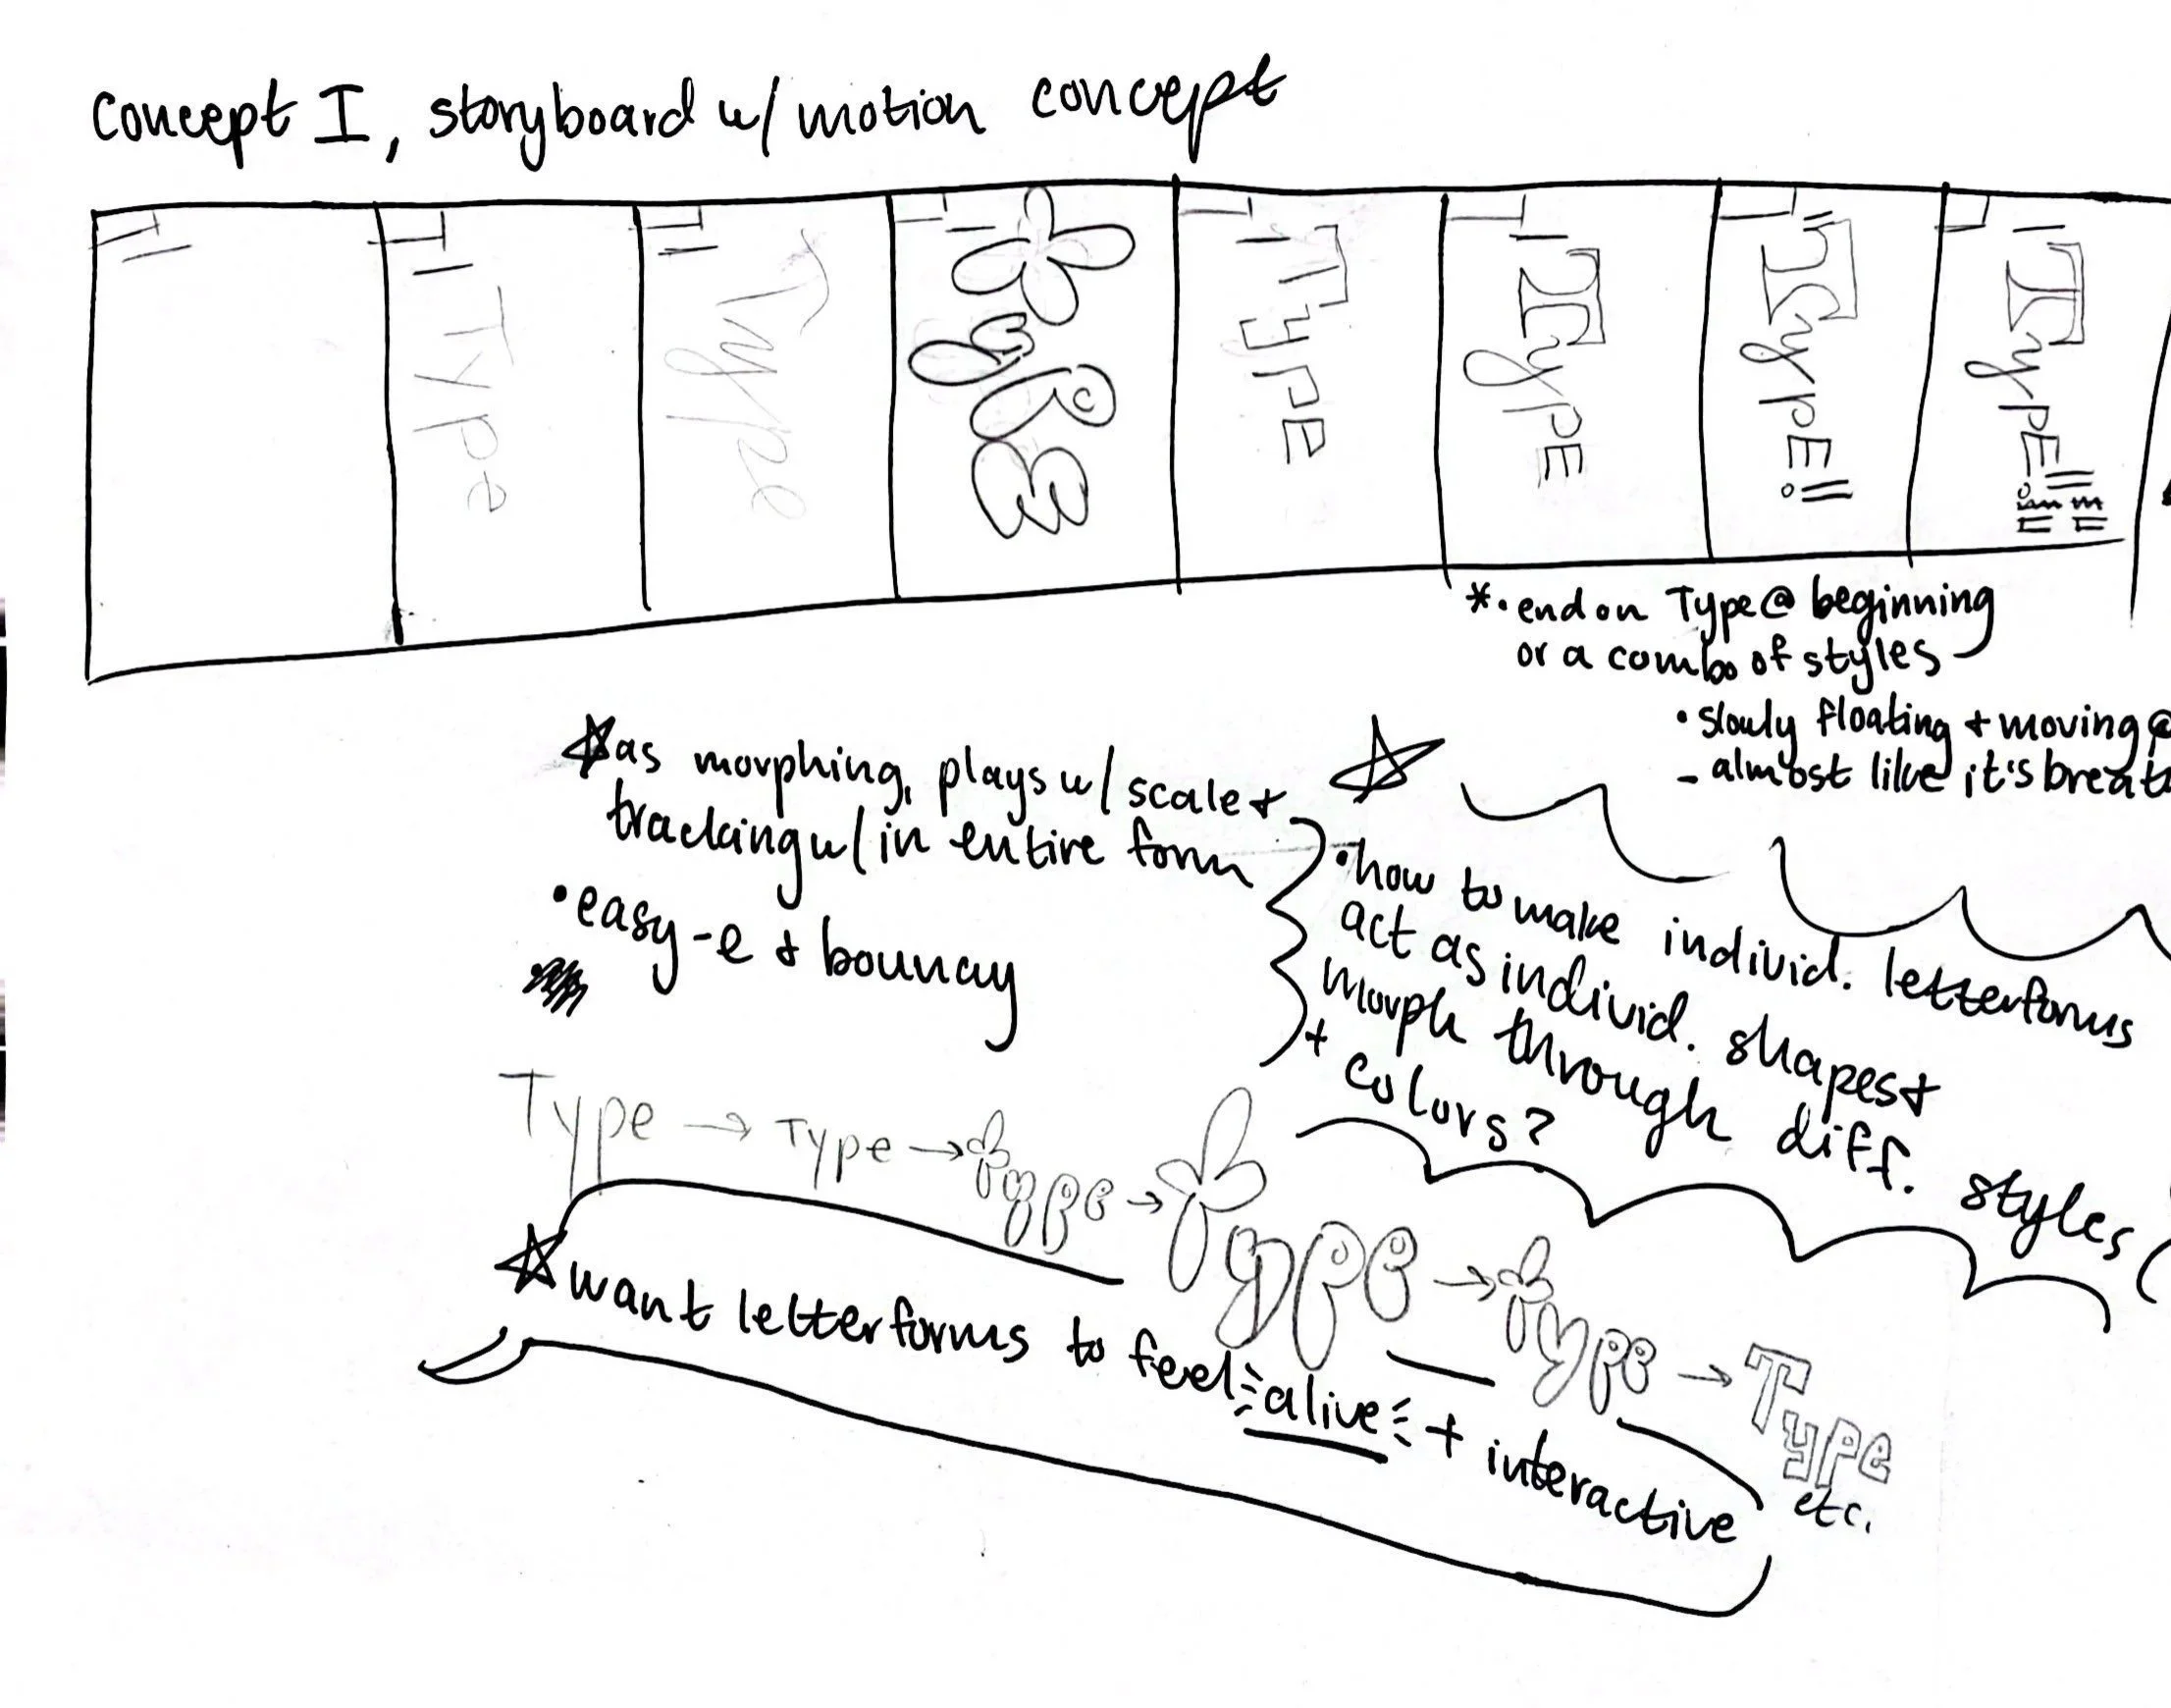 concept I, storyboard w/ motion concept
Type
Type
Type
TypE
TypE
TypE!!
TypE!!
*•end on Type @ beginning
or a combo of styles
•slowly floating + moving @
- almost like it's breat
as morphing, plays w/ scale +
tracking w/in entire form
•easy-e + bouncy
•how to make individ. letterforms
act as individ. shapes +
morph through diff. styles (
+ colors?
Type → Type → type → type → type → Type
etc.
want letterforms to feel alive + interactive